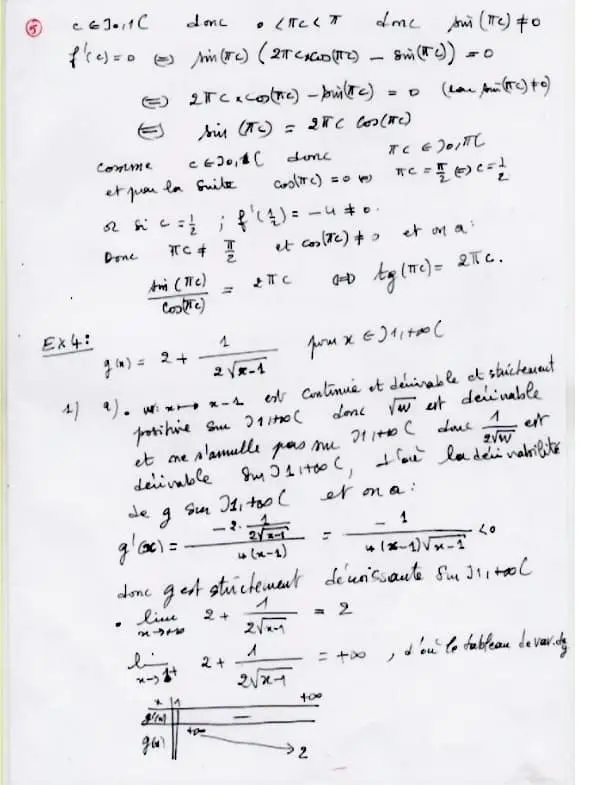 ⑤ c ∈ ]0,1[ donc 0 < πc < π donc sin(πc) ≠ 0
f'(c) = 0 ⇔ sin(πc) (2πc×cos(πc) − sin(πc)) = 0
⇔ 2πc × cos(πc) − sin(πc) = 0 (car sin(πc) ≠ 0)
⇔ sin(πc) = 2πc cos(πc)
comme c ∈ ]0,1[ donc πc ∈ ]0,π[
et par la suite cos(πc) = 0 ⇔ πc = π/2 ⇔ c = 1/2
or si c = 1/2 ; f'(1/2) = −4 ≠ 0.
Donc πc ≠ π/2 et cos(πc) ≠ 0 et on a :
sin(πc)/cos(πc) = 2πc ⇔ tg(πc) = 2πc.
EX4:
g(x) = 2 + 1/(2√(x−1)) pour x ∈ ]1,+∞[
1) a) • w: x ↦ x−1 est continue et dérivable et strictement
positive sur ]1,+∞[ donc √w est dérivable
et ne s'annulle pas sur ]1,+∞[ donc 1/(2√w) est
dérivable sur ]1,+∞[, d'où la dérivabilité
de g sur ]1,+∞[ et on a :
g'(x) = (−2·1/(2√(x−1)))/(4(x−1)) = −1/(4(x−1)√(x−1)) < 0
donc g est strictement décroissante sur ]1,+∞[
• lim x→+∞ 2 + 1/(2√(x−1)) = 2
lim x→1+ 2 + 1/(2√(x−1)) = +∞ , d'où le tableau de var. de g
x 1 +∞
g'(x) −
g(x) +∞ → 2